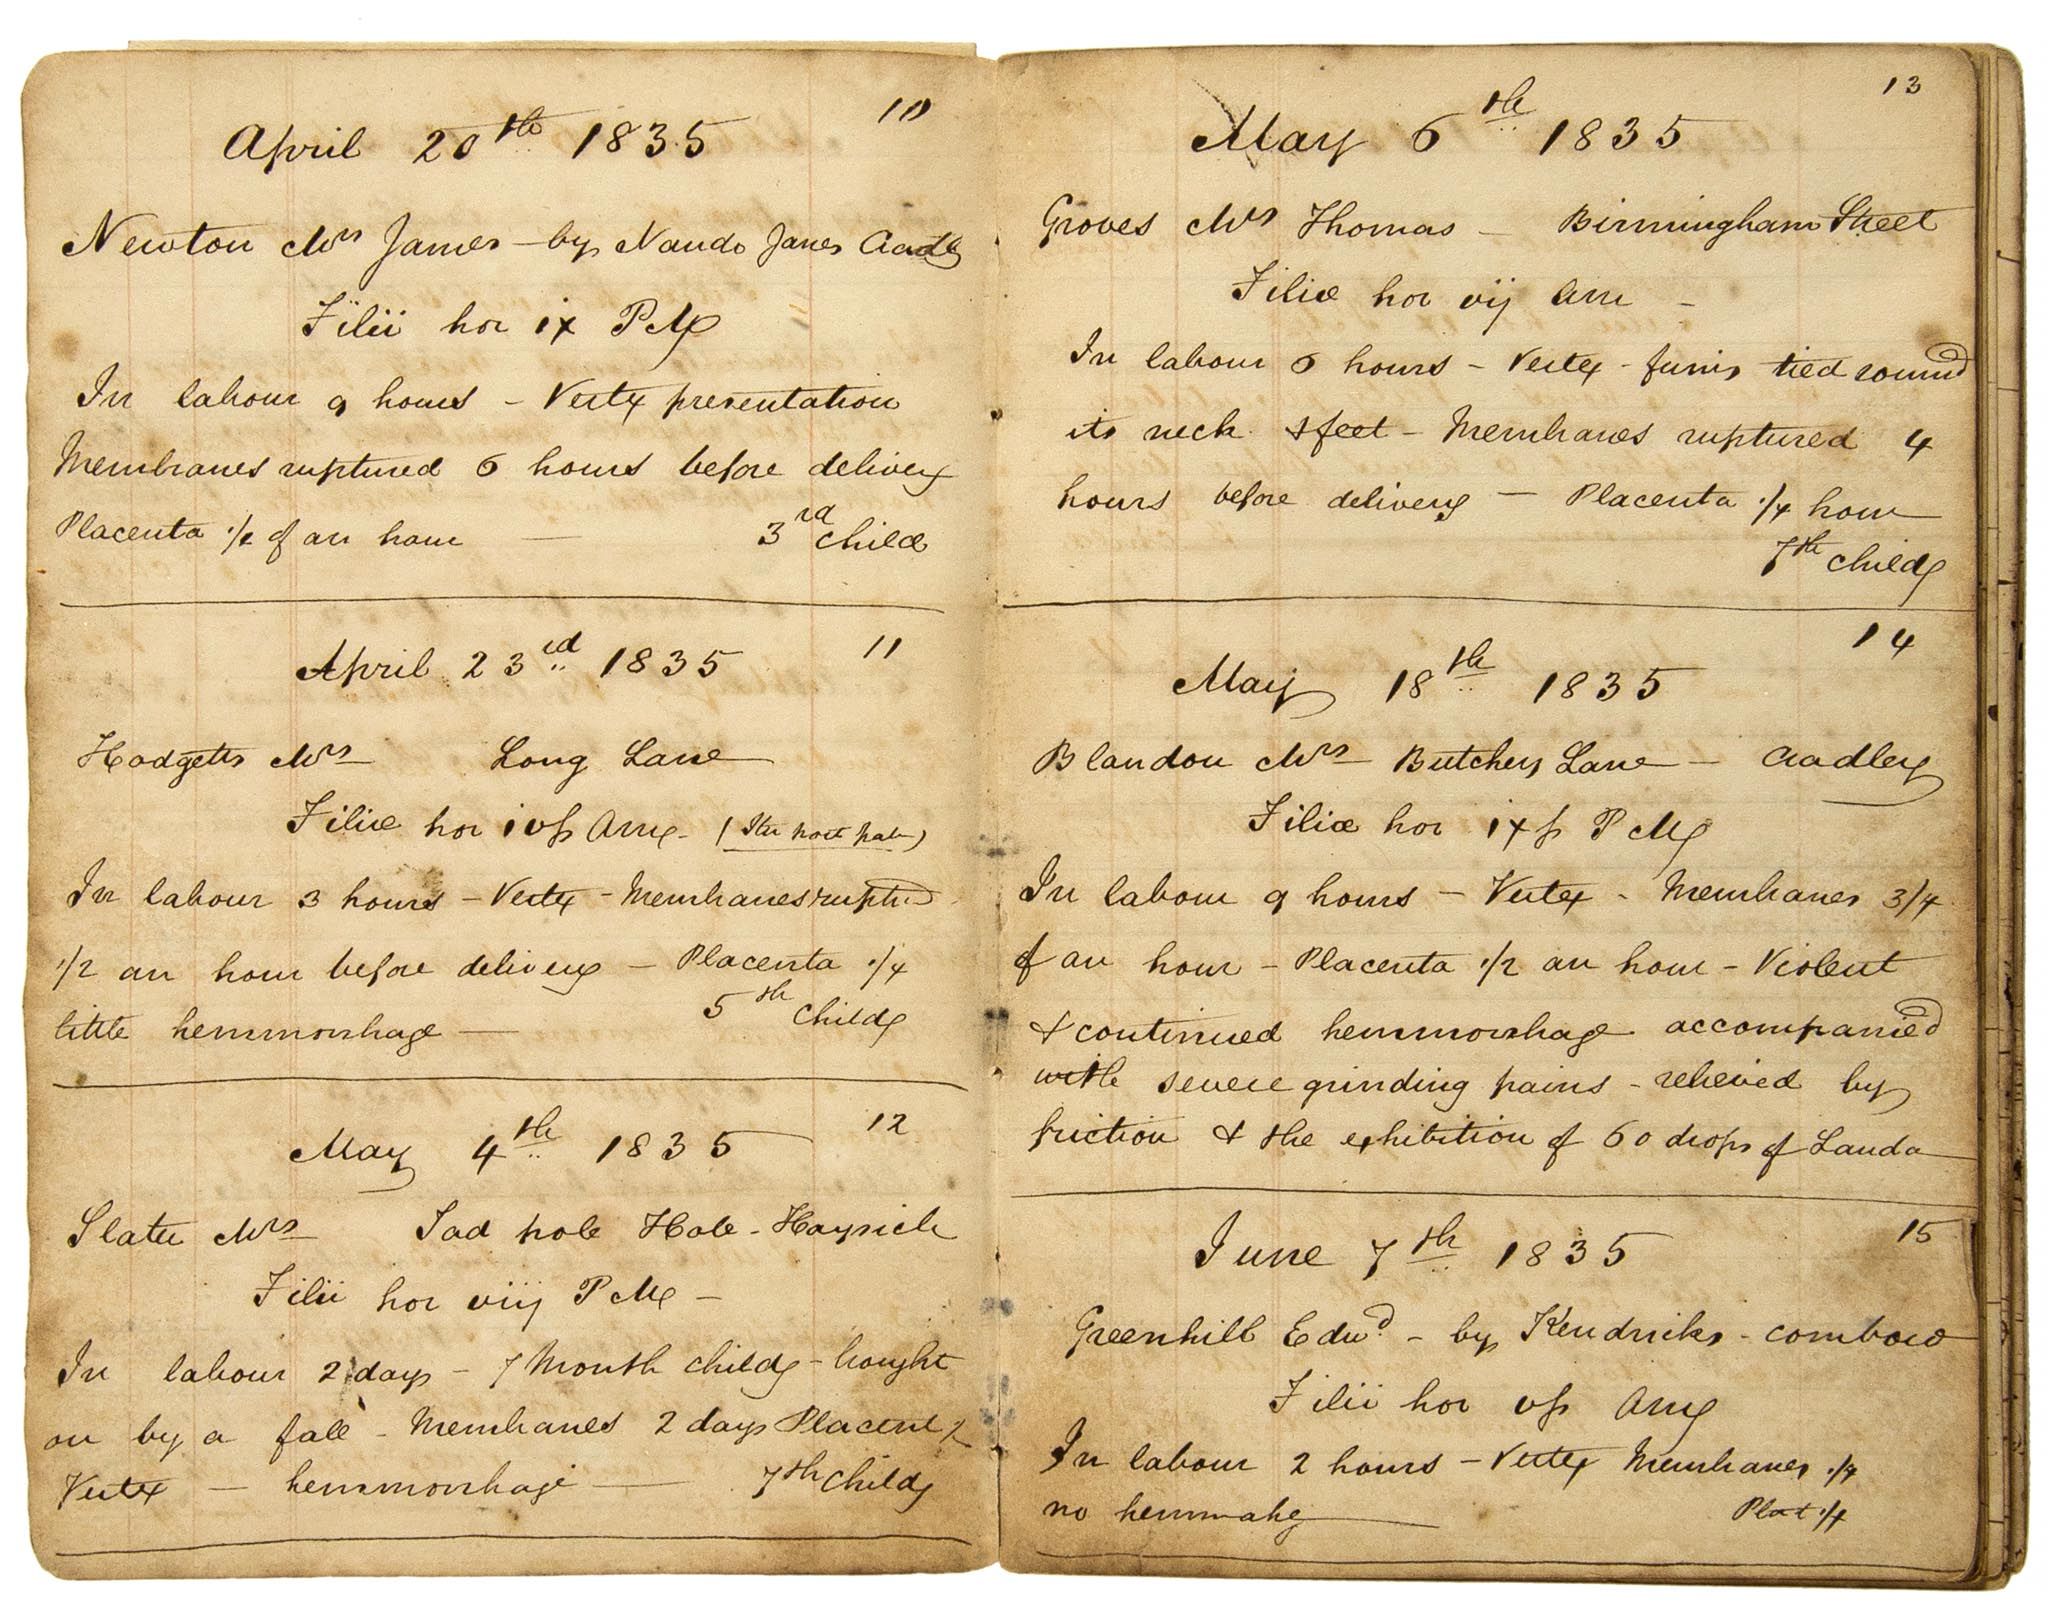 10
April 20th 1835
Newton Mrs James - by Nando Janes Cradly
Filii hor ix PM
In labour 9 hours - Vertex presentation
Membranes ruptured 6 hours before delivery
Placenta 1/2 of an hour — 3rd child
11
April 23rd 1835
Hodgetts Mrs Long Lane
Filiæ hor ivſs Am - (Iter post part)
In labour 3 hours - Vertex - Membranes rupturd
1/2 an hour before delivery - Placenta 1/4
little hemmorrhage — 5th child
12
May 4th 1835
Slater Mrs Tad pole Hole - Hayseich
Filii hor viij PM -
In labour 2 days - 7 Month child - brought
on by a fall - Membranes 2 days Placent
Vertex - hemmorrhage — 7th child
13
May 6th 1835
Groves Mrs Thomas - Birmingham Street
Filiæ hor vij Am -
In labour 6 hours - Vertex - funis tied round
its neck & feet - Membranes ruptured 4
hours before delivery - Placenta 1/4 hour
7th child
14
May 18th 1835
Blandon Mrs Butchers Lane - Cradley
Filiæ hor ixſs PM
In labour 9 hours - Vertex - Membranes 3/4
of an hour - Placenta 1/2 an hour - Violent
& continued hemmorrhage accompanied
with severe grinding pains - relieved by
friction & the exhibition of 60 drops of Lauda
15
June 7th 1835
Greenhill Edwd - by Kendricks - combow
Filii hor vſs Am
In labour 2 hours - Vertex Membranes 1/4
no hemmahg — Plat 1/4